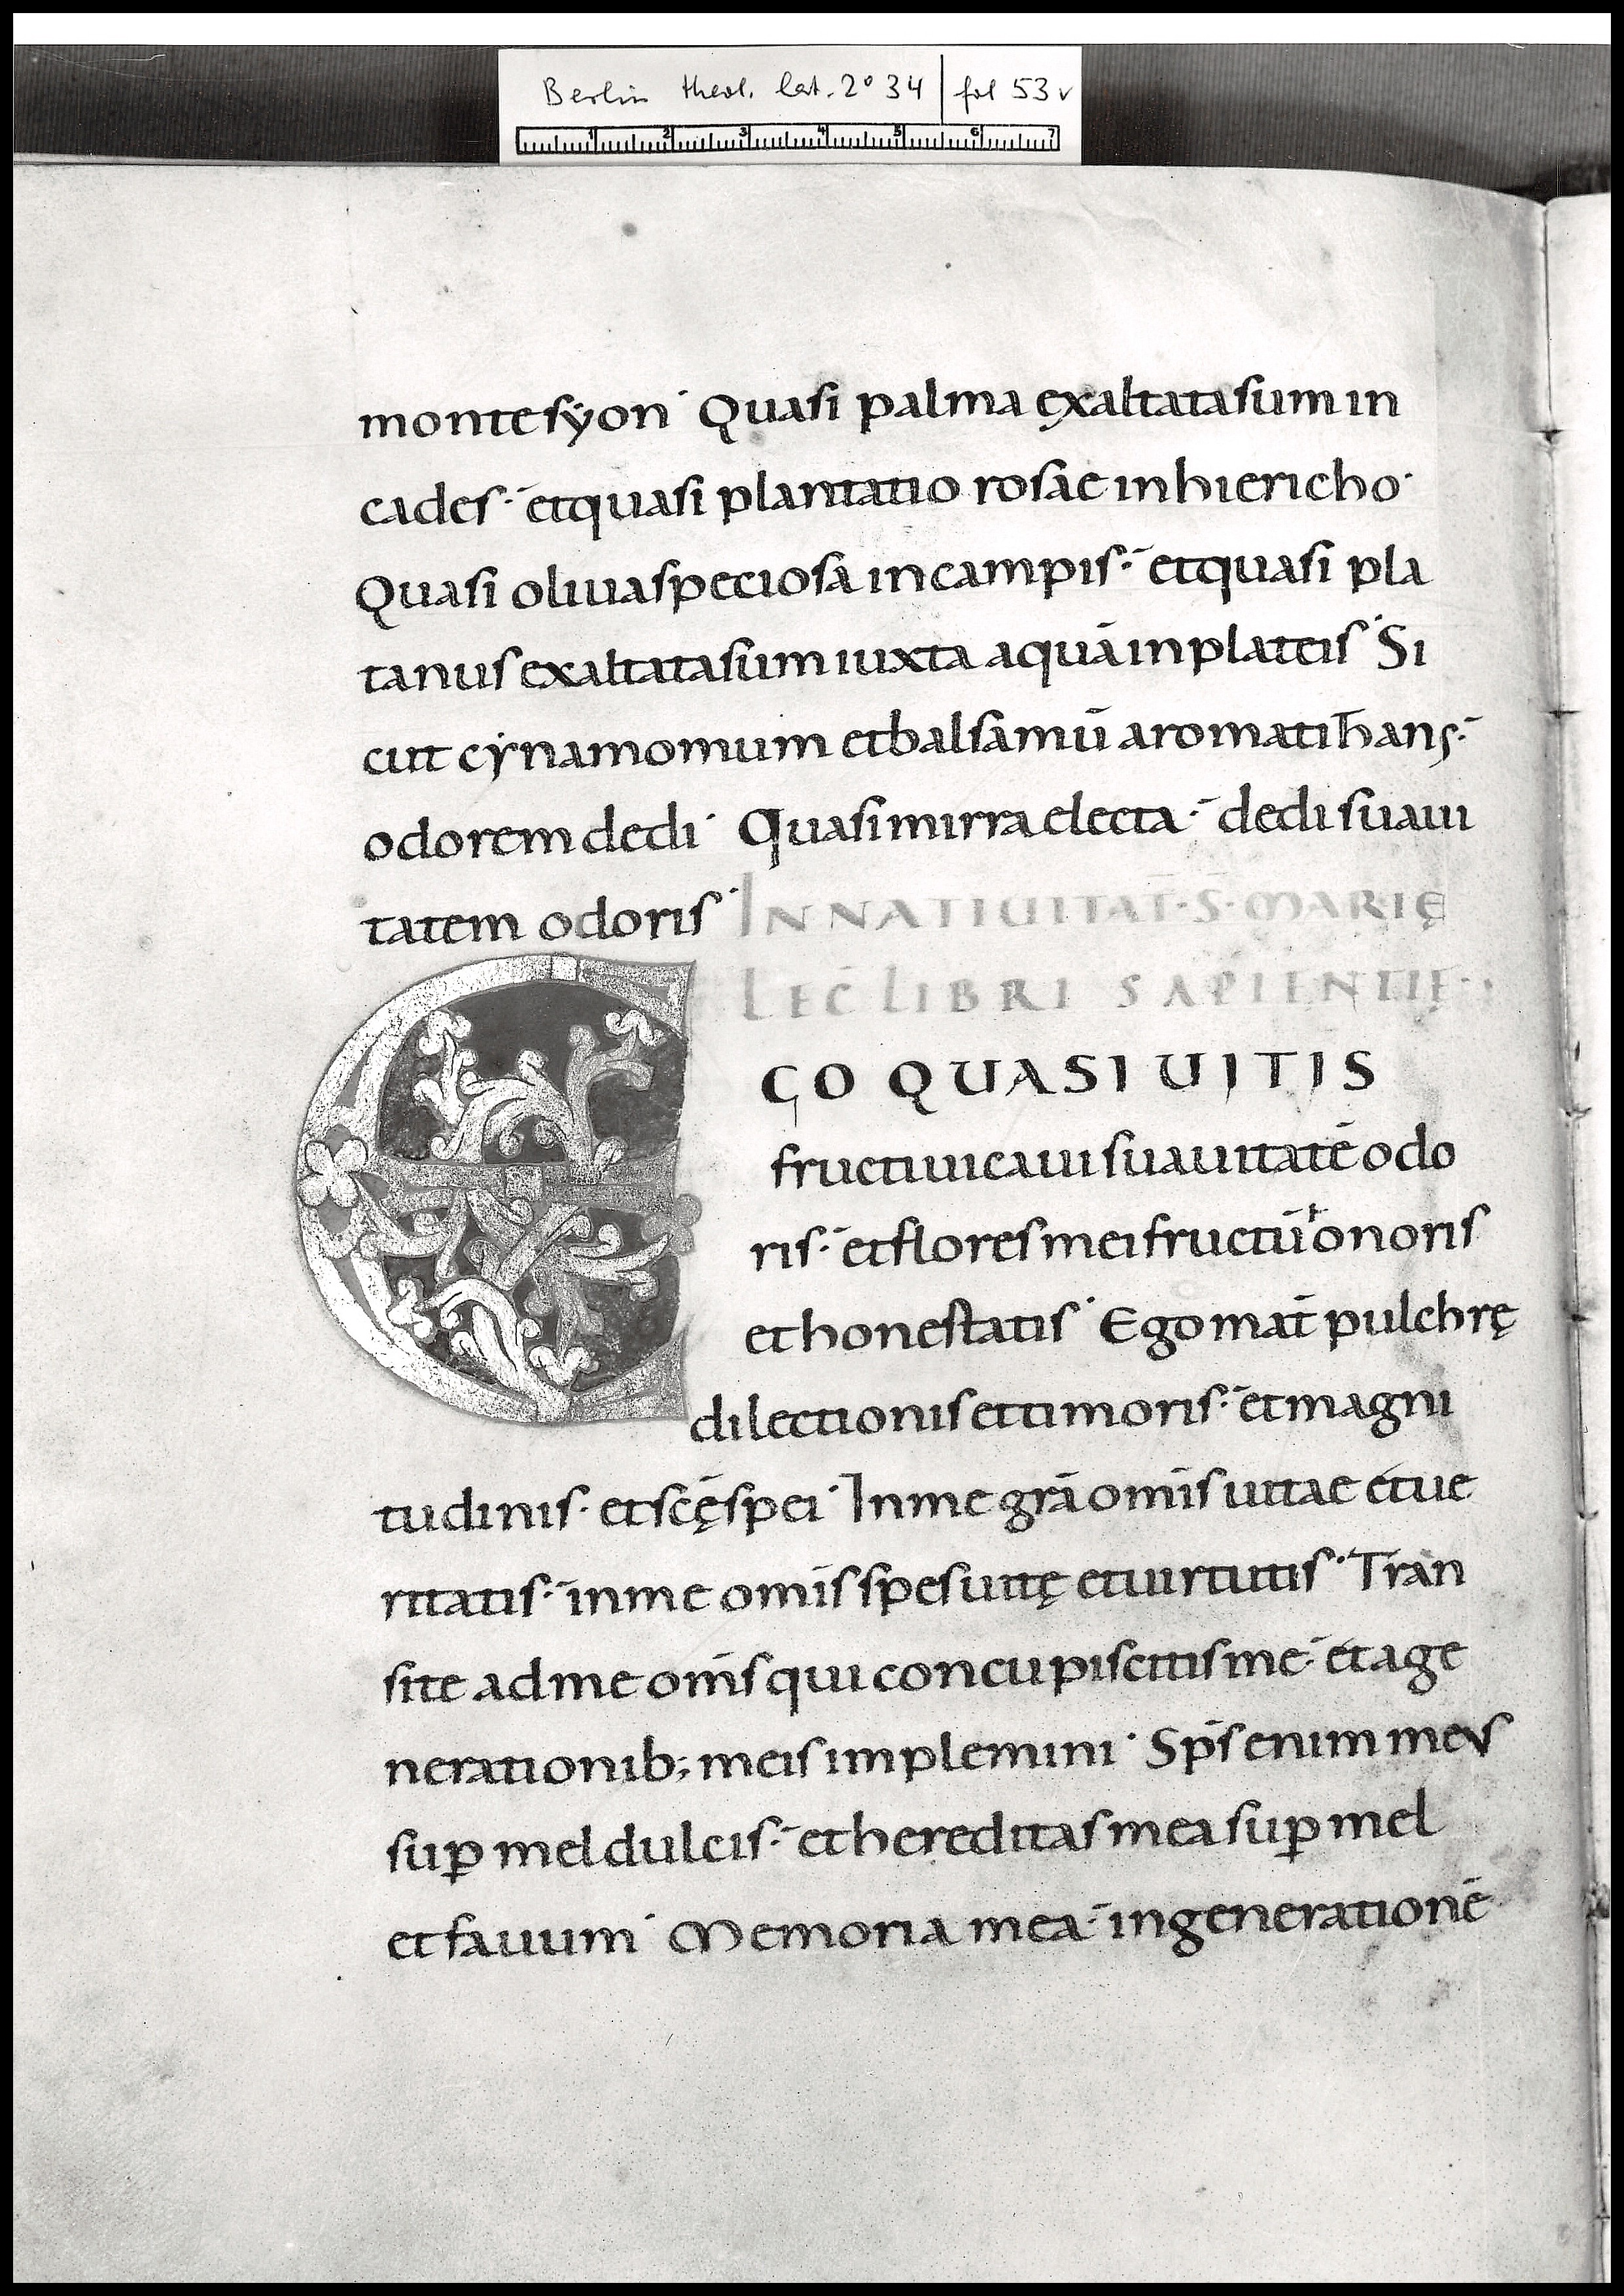 Berlin theol. lat. 2° 34 | fol 53v
1 2 3 4 5 6 7
monte syon· Quasi palma exaltata sum in
cades· et quasi plantatio rosae in hiericho·
Quasi oliua speciosa in campis· et quasi pla
tanus exaltata sum iuxta aquā in plateis· Si
cut cynamomum et balsamū aromatihans·
odorem dedi· Quasi mirra electa· dedi suaui
tatem odoris· IN NATIUITAT̄·S̄·MARIĘ
LEC̄ LIBRI SAPIENTIĘ·
EGO QUASI UITIS
fructiuicaui suauitatē odo
ris· et flores mei fructū honoris
et honestatis· Ego mat̄ pulchrę
dilectionis et timoris· et magni
tudinis· et scę̄ spei· In me grā omīs uitae et ue
ritatis· in me omīs spes uitę et uirtutis· Tran
site ad me om̄s qui concupiscitis me· et a ge
nerationib; meis implemini· Sp̄s enim meus
suꝑ mel dulcis· et hereditas mea suꝑ mel
et fauum· Memoria mea· in generationē